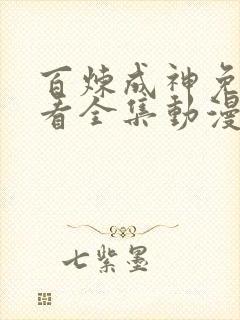 百炼成神免
看全集動漫
七紫墨